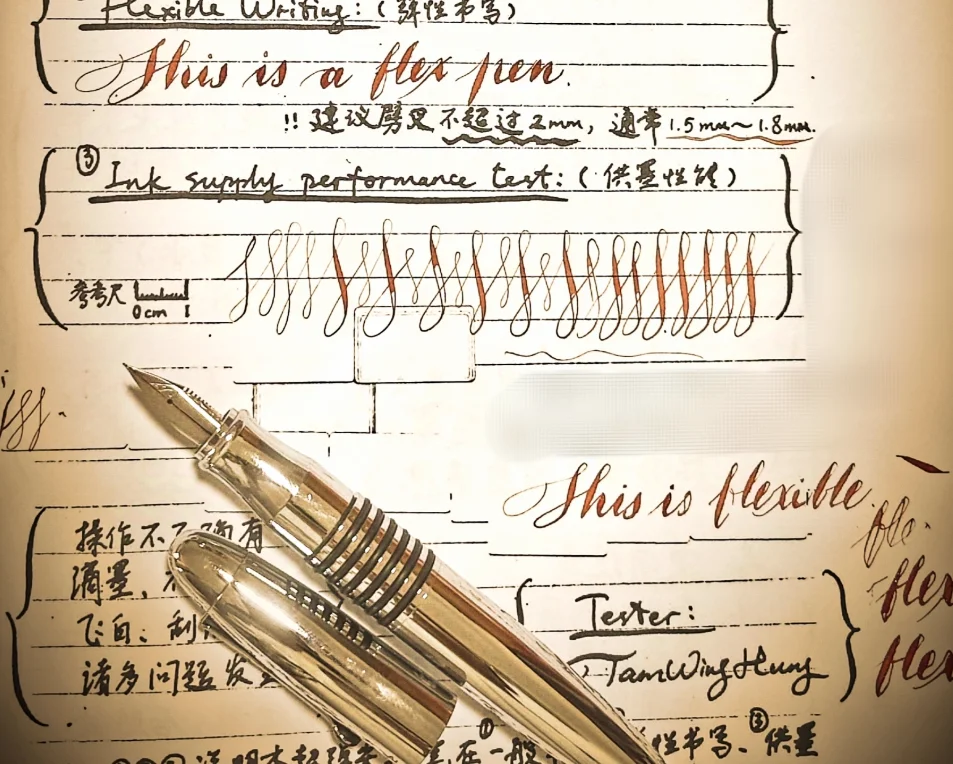 Flexible Writing: (弹性书写)
This is a flex pen.
!! 建议劈叉不超过2mm, 通常1.5mm~1.8mm.
③ Ink supply performance test: (供墨性能)
参考尺
0cm 1
This is flexible.
fle.
flex
flex
操作不正确有
滴墨、
飞白、刮
诸多问题发生
Tester:
TamWingHung
① ③
性书写、供墨